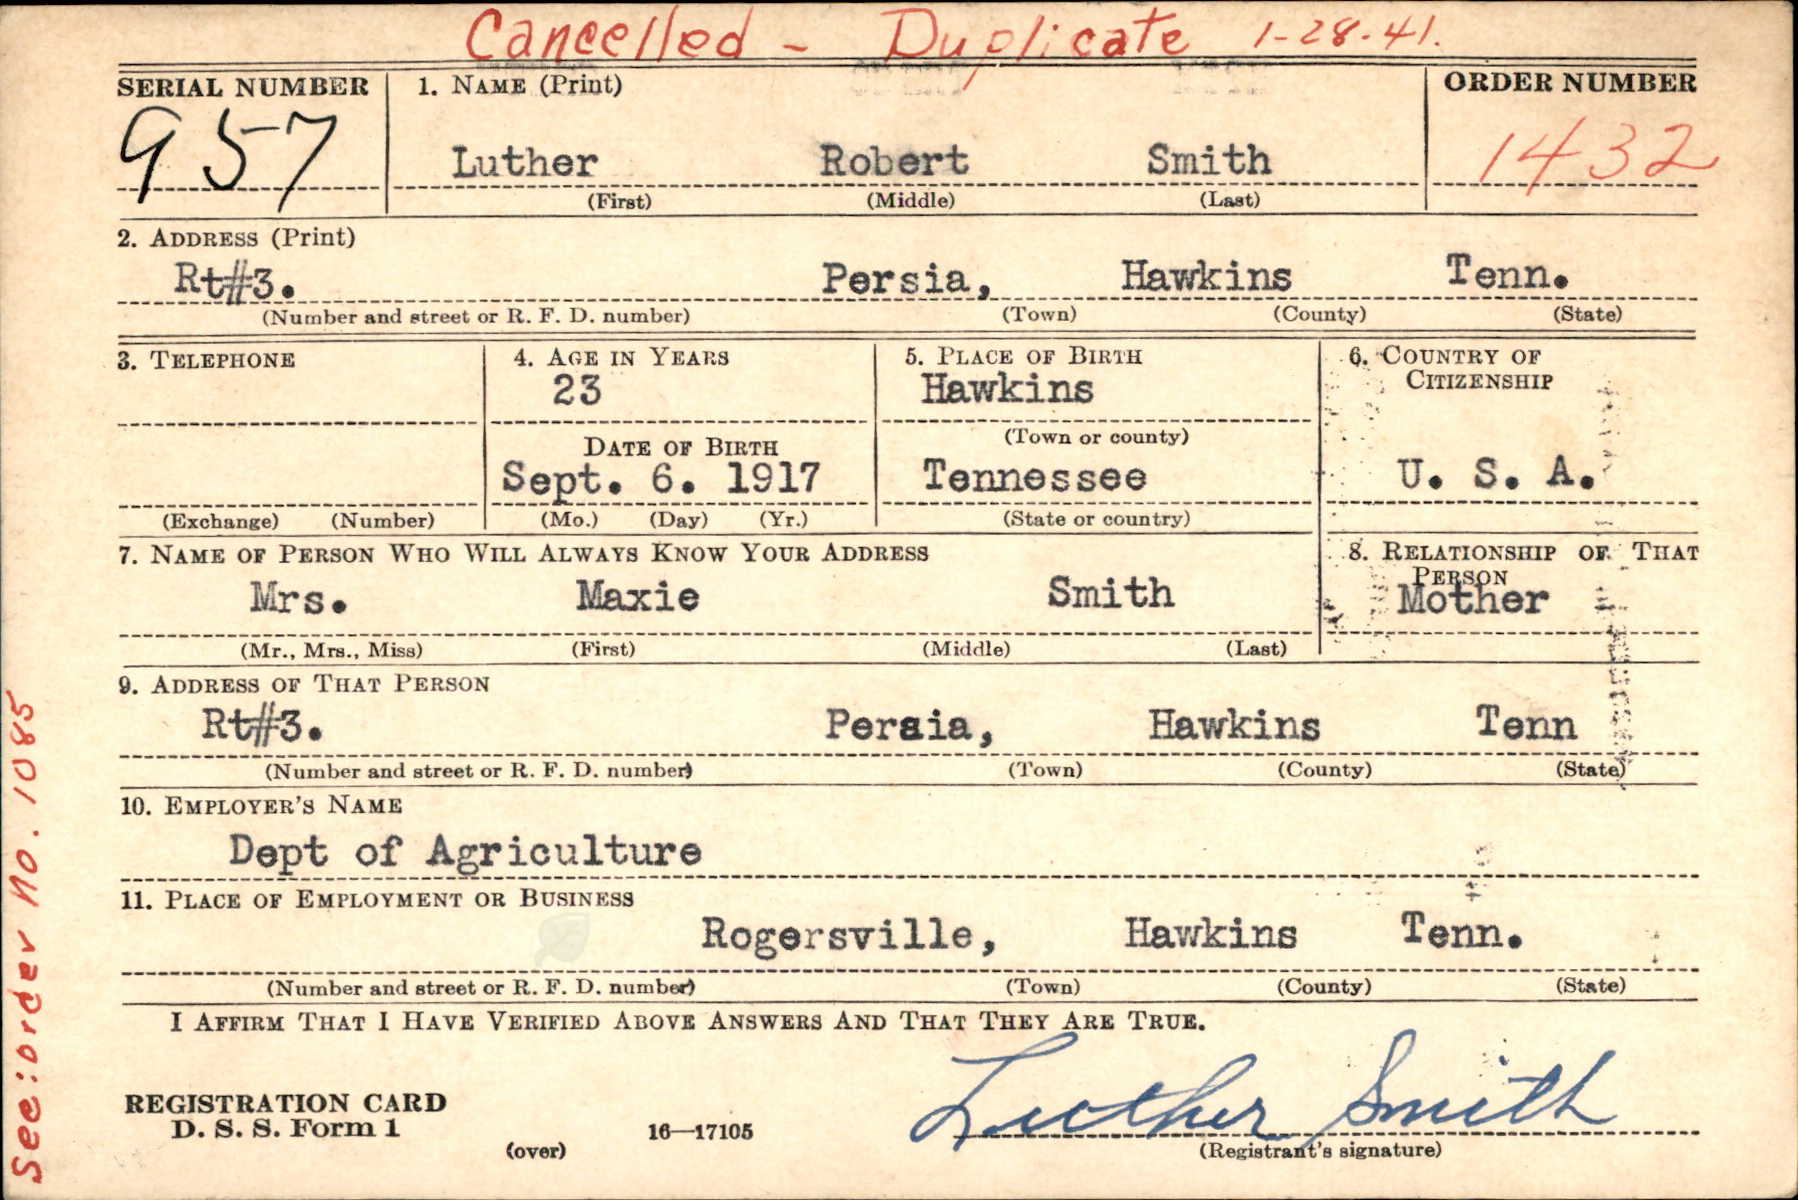 Cancelled - Duplicate 1-28-41.
SERIAL NUMBER 1. NAME (Print) ORDER NUMBER
957 Luther Robert Smith 1432
(First) (Middle) (Last)
2. ADDRESS (Print)
Rt#3. Persia, Hawkins Tenn.
(Number and street or R. F. D. number) (Town) (County) (State)
3. TELEPHONE 4. AGE IN YEARS 5. PLACE OF BIRTH 6. COUNTRY OF
CITIZENSHIP
23 Hawkins
DATE OF BIRTH (Town or county)
Sept. 6. 1917 Tennessee U. S. A.
(Exchange) (Number) (Mo.) (Day) (Yr.) (State or country)
7. NAME OF PERSON WHO WILL ALWAYS KNOW YOUR ADDRESS 8. RELATIONSHIP OF THAT
PERSON
Mrs. Maxie Smith Mother
(Mr., Mrs., Miss) (First) (Middle) (Last)
9. ADDRESS OF THAT PERSON
Rt#3. Persia, Hawkins Tenn
(Number and street or R. F. D. number) (Town) (County) (State)
10. EMPLOYER'S NAME
Dept of Agriculture
11. PLACE OF EMPLOYMENT OR BUSINESS
Rogersville, Hawkins Tenn.
(Number and street or R. F. D. number) (Town) (County) (State)
I AFFIRM THAT I HAVE VERIFIED ABOVE ANSWERS AND THAT THEY ARE TRUE.
Luther Smith
REGISTRATION CARD
D. S. S. Form 1 (over) 16—17105 (Registrant's signature)
See: order no. 1085